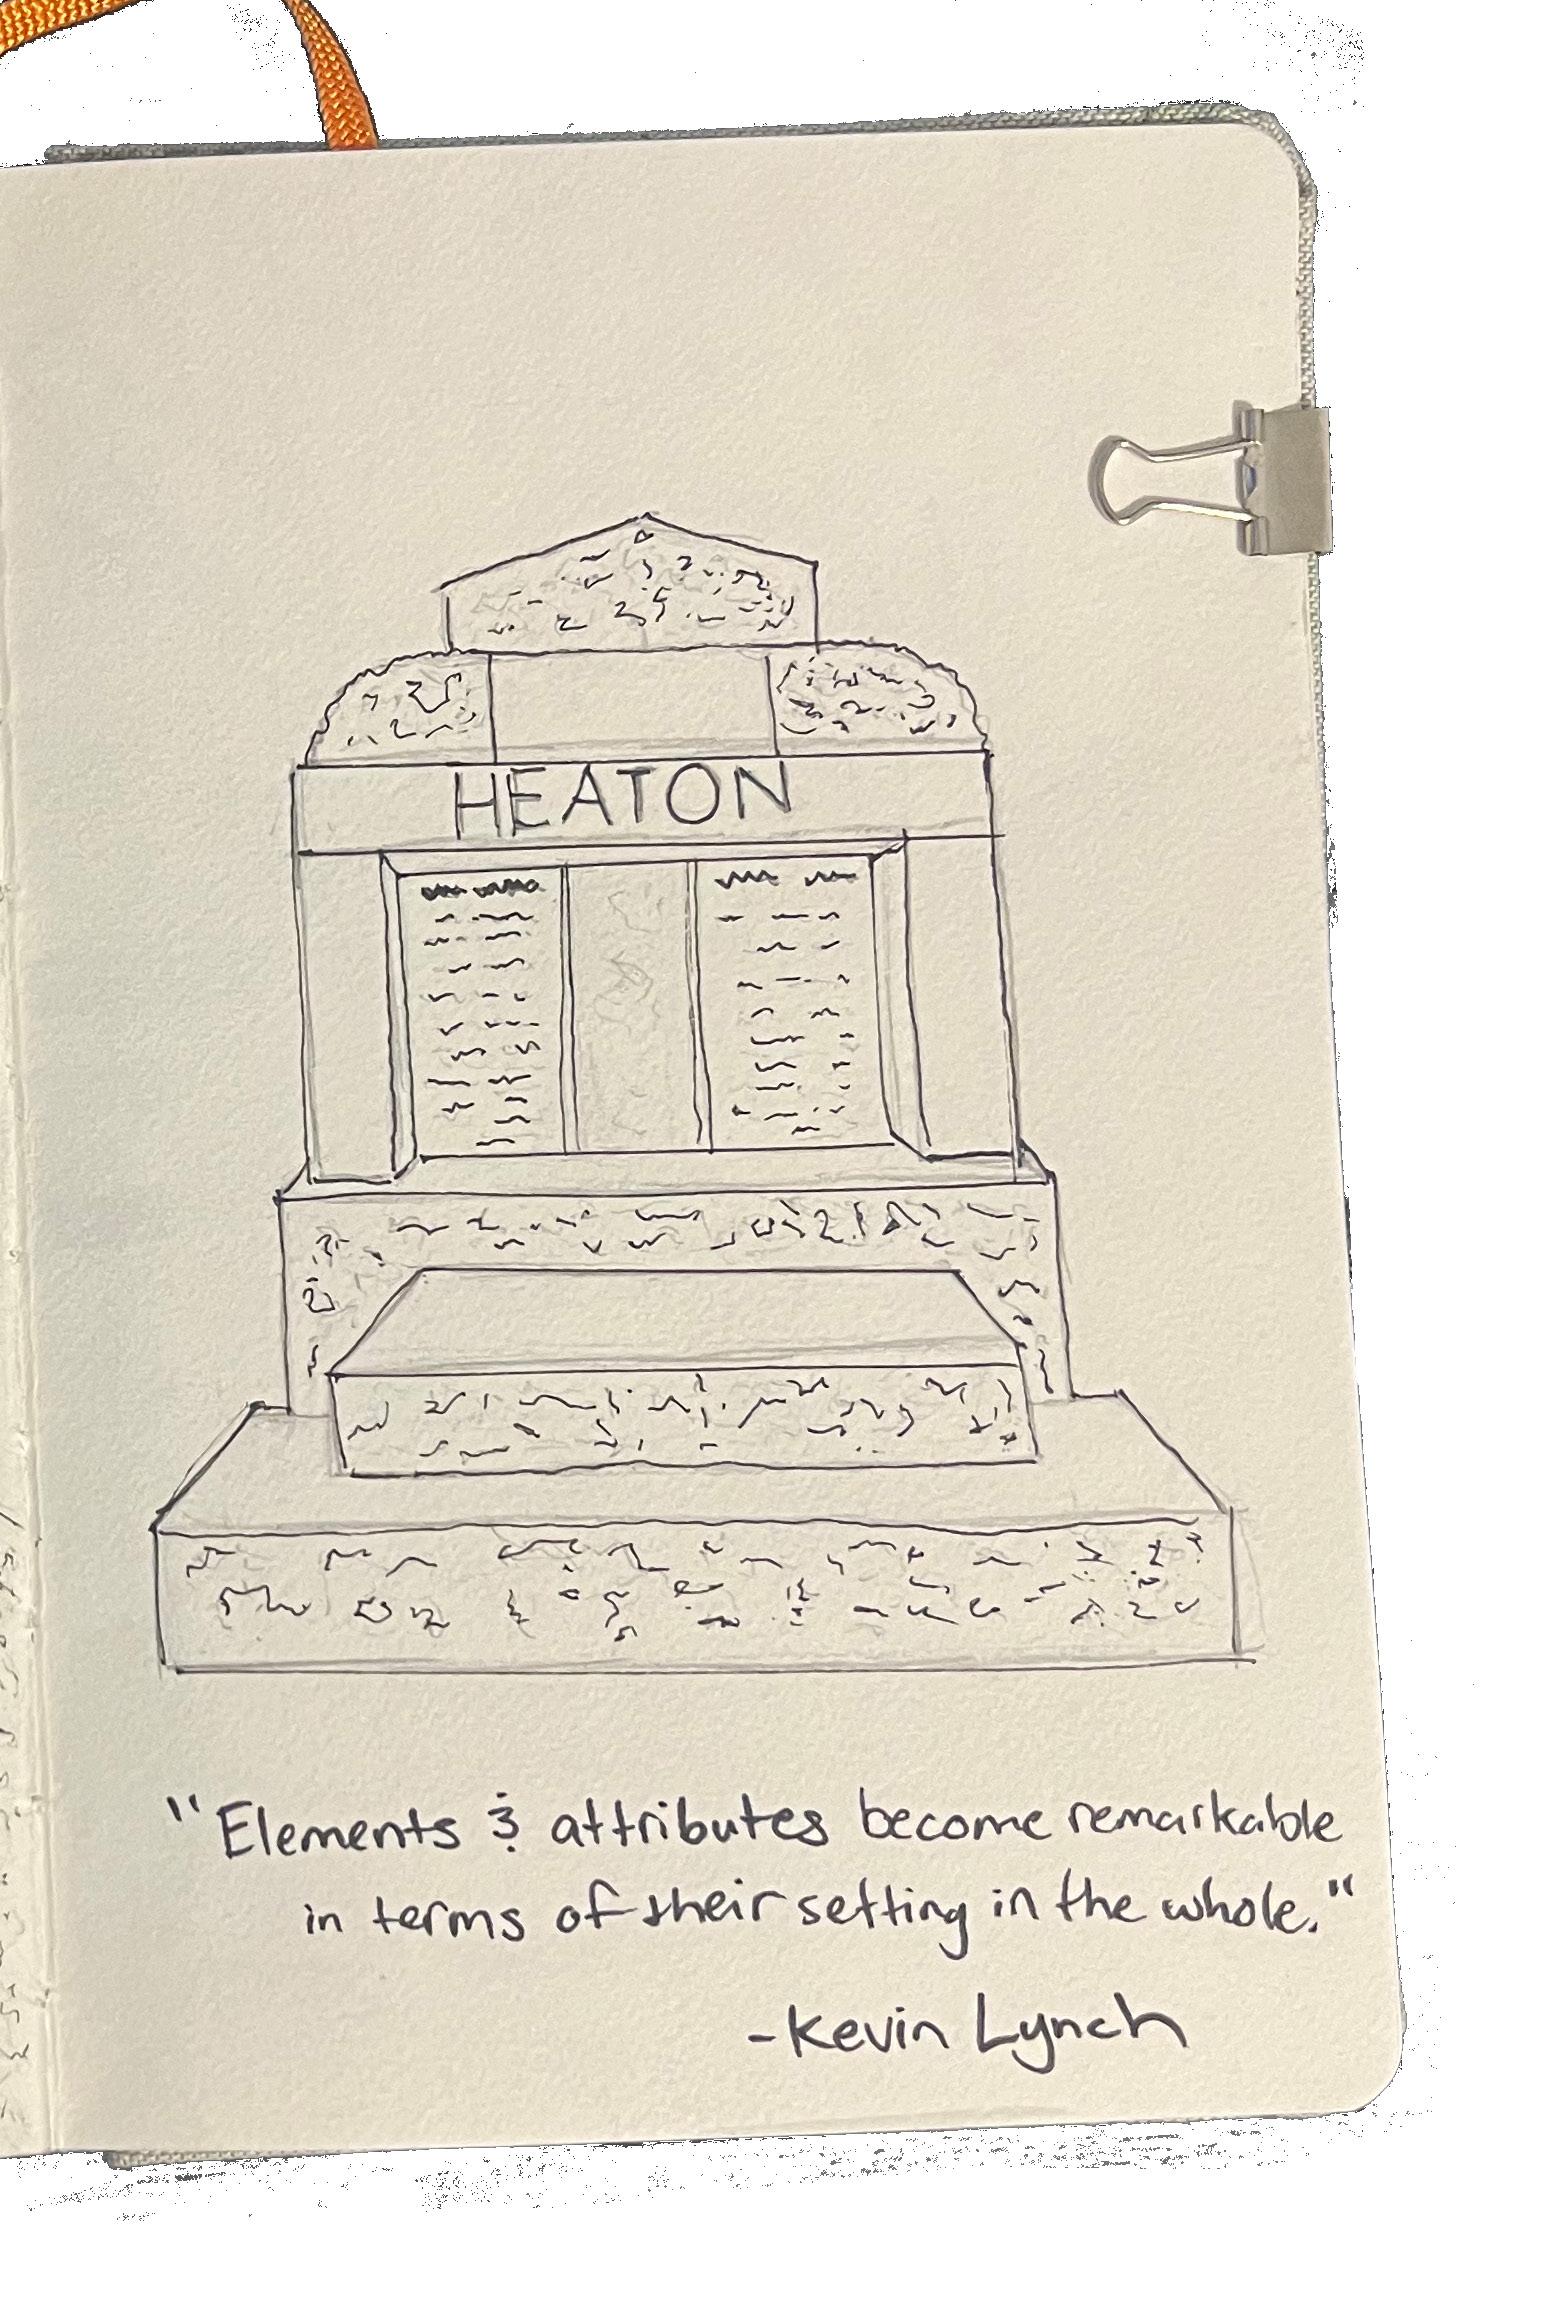 HEATON
"Elements & attributes become remarkable
in terms of their setting in the whole."
-Kevin Lynch